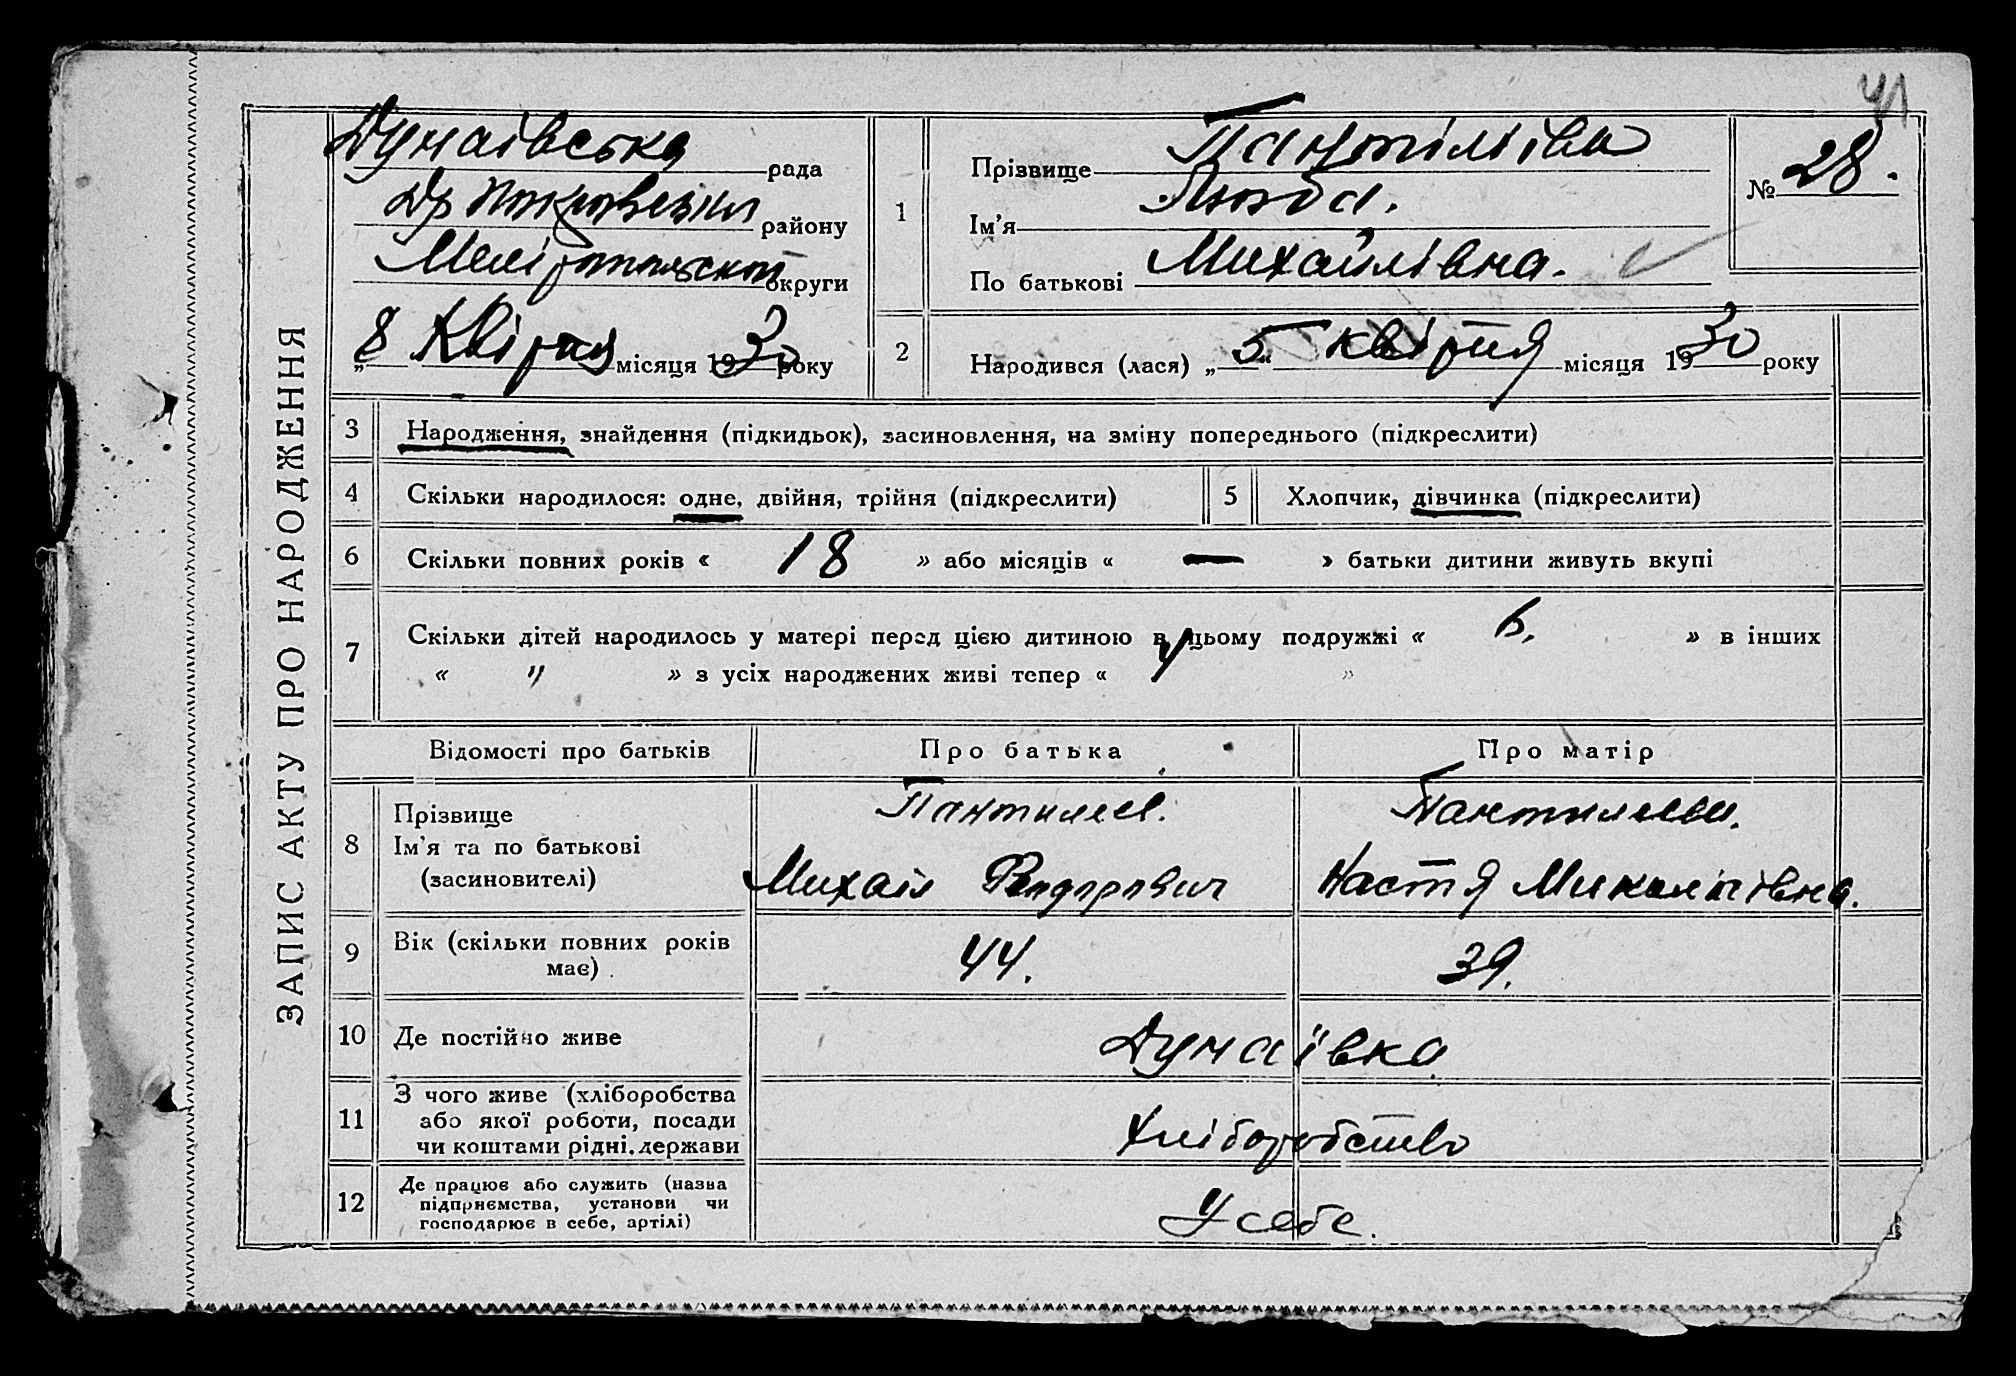 41
ЗАПИС АКТУ ПРО НАРОДЖЕННЯ
Дунаівська рада
району
округи
„8 Квітня місяця 1930 року
1
Прізвище Пантіліїва
Ім'я Люба.
По батькові Михайлівна.
№ 28.
2
Народився (лася) „5“ квітня місяця 1930 року
3 Народження, знайдення (підкидьок), засиновлення, на зміну попереднього (підкреслити)
4 Скільки народилося: одне, двійня, трійня (підкреслити)
5 Хлопчик, дівчинка (підкреслити)
6 Скільки повних років « 18 » або місяців « — » батьки дитини живуть вкупі
7 Скільки дітей народилось у матері перед цією дитиною в цьому подружжі « » в інших
« " » з усіх народжених живі тепер « »
Відомості про батьків Про батька Про матір
8 Прізвище
Ім'я та по батькові
(засиновителі)
Пантилеев.
Михаіл
Пантилеева.
Настя Миколаівна.
9 Вік (скільки повних років має) 44. 39.
10 Де постійно живе Дунаївка
11 З чого живе (хліборобства
або якої роботи, посади
чи коштами рідні, держави
Хліборобство
12 Де працює або служить (назва
підприємства, установи чи
господарює в себе, артілі)
У себе.